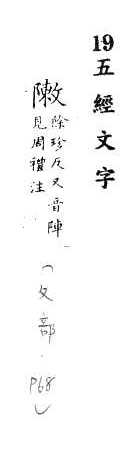 19五經文字
敶除珍反又音陣
見周禮注
(攵部.P68)